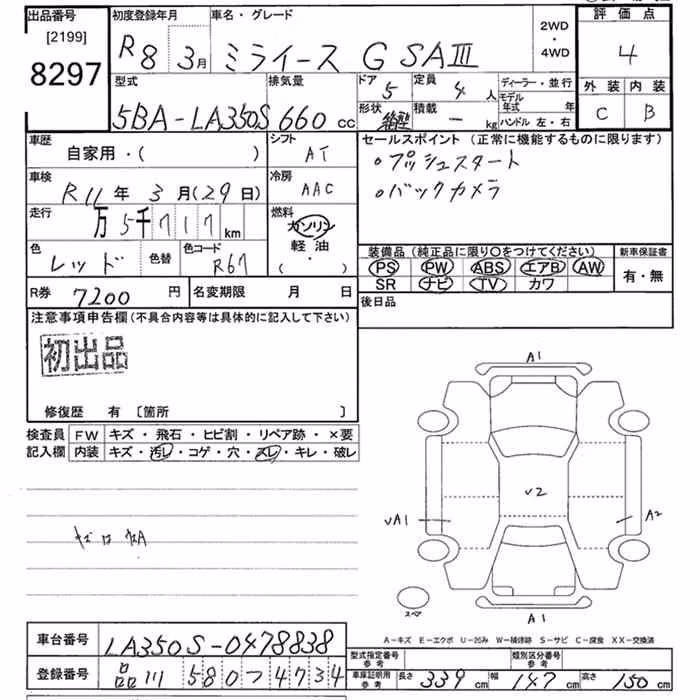 出品番号
[2199]
8297
初度登録年月
R8 3月
車名・グレード
ミライース G SAⅢ
2WD
・
4WD
評価点
4
外装 内装
C B
型式
5BA-LA350S
排気量
660 cc
ドア
5
定員
4 人
形状
積載
- kg
ディーラー・並行
モデル
年式 年
ハンドル 左・右
車歴
自家用・( )
シフト
AT
車検
R11年 3月(29日)
冷房
AAC
走行
万5千717km
燃料
ガソリン
軽油
( ・ )
色
レッド
色替
色コード
R67
セールスポイント (正常に機能するものに限ります)
○プッシュスタート
○バックカメラ
装備品 (純正品に限り○をつけてください)
PS PW ABS エアB AW
SR ナビ TV カワ
新車保証書
有・無
R券 7200 円
名変期限 月 日
後日品
注意事項申告欄 (不具合内容等は具体的に記入して下さい)
初出品
修復歴 有 〔箇所 〕
検査員
記入欄
FW キズ・飛石・ヒビ割・リペア跡・×要
内装 キズ・汚レ・コゲ・穴・スレ・キレ・破レ
A1
V2
UA1
A2
A1
スペア
A-キズ E-エクボ U-凹み W-補修跡 S-サビ C-腐食 XX-交換済
車台番号
LA350S-0478838
登録番号
品川 580つ4734
型式指定番号
参考
類別区分番号
参考
車庫証明用
参考
長さ 339 cm
幅 147 cm
高さ 150 cm